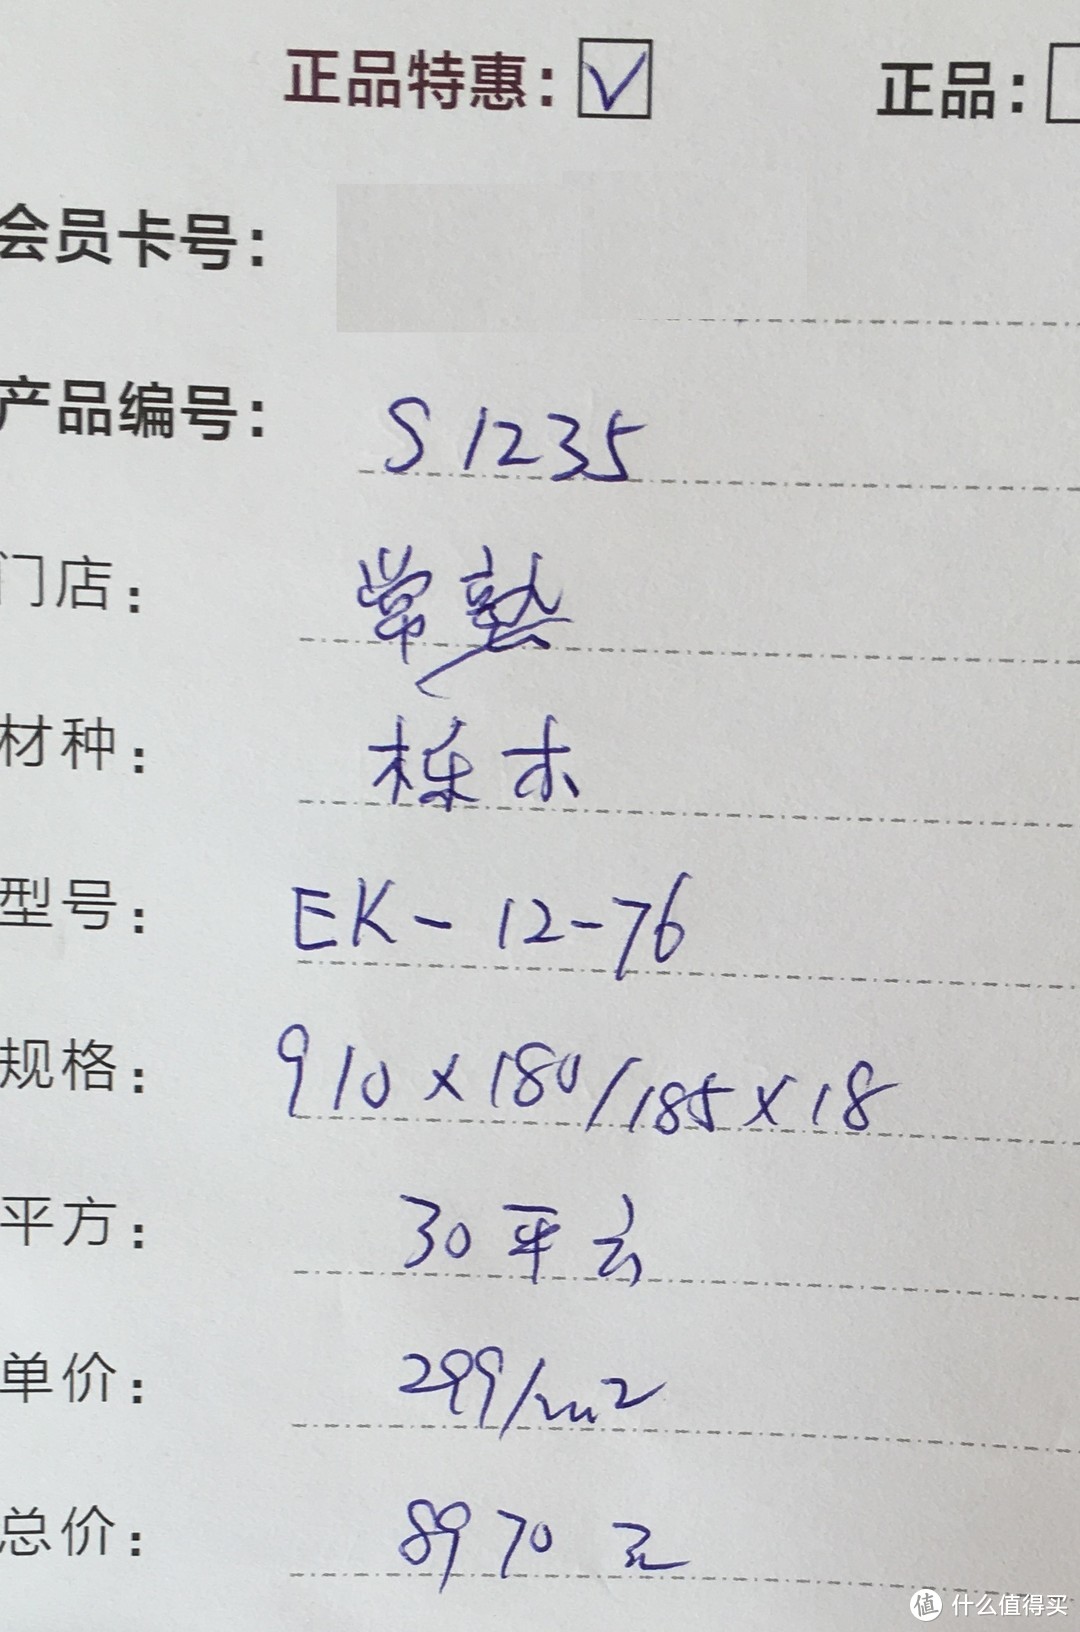 正品特惠：☑ 正品：☐
会员卡号：
产品编号： S1235
门店： 常熟
材种： 栎木
型号： EK-12-76
规格： 910×180/185×18
平方： 30平方
单价： 299/m²
总价： 8970元
值 什么值得买